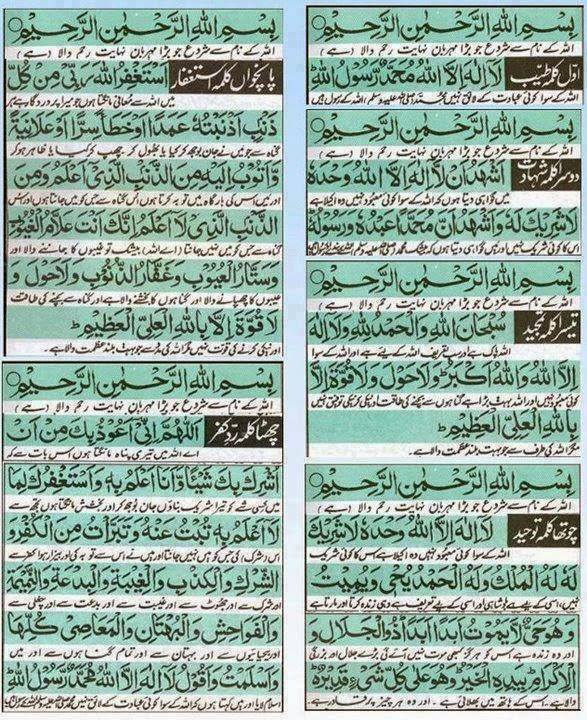 بِسْمِ اللهِ الرَّحْمٰنِ الرَّحِيْمِ
اللہ کے نام سے شروع جو بڑا مہربان نہایت رحم والا (ہے)
اوّل کلمہ طیّب لَا اِلٰهَ اِلَّا اللهُ مُحَمَّدٌ رَّسُوْلُ اللهِ
اللہ کے سوا کوئی عبادت کے لائق نہیں محمد صلی اللہ علیہ وسلم اللہ کے رسول ہیں
بِسْمِ اللهِ الرَّحْمٰنِ الرَّحِيْمِ
اللہ کے نام سے شروع جو بڑا مہربان نہایت رحم والا (ہے)
دوسرا کلمہ شہادت اَشْهَدُ اَنْ لَّا اِلٰهَ اِلَّا اللهُ وَحْدَهٗ
میں گواہی دیتا ہوں کہ اللہ کے سوا کوئی معبود نہیں وہ اکیلا ہے
لَا شَرِيْكَ لَهٗ وَاَشْهَدُ اَنَّ مُحَمَّدًا عَبْدُهٗ وَرَسُوْلُهٗ
اس کا کوئی شریک نہیں اور میں گواہی دیتا ہوں کہ بیشک محمد صلی اللہ علیہ وسلم اللہ کے بندے اور رسول ہیں
بِسْمِ اللهِ الرَّحْمٰنِ الرَّحِيْمِ
اللہ کے نام سے شروع جو بڑا مہربان نہایت رحم والا (ہے)
تیسرا کلمہ تمجید سُبْحَانَ اللهِ وَالْحَمْدُ لِلّٰهِ وَلَا اِلٰهَ
اللہ پاک ہے اور سب تعریف اللہ کے لئے ہے اور اللہ کے سوا
اِلَّا اللهُ وَاللهُ اَكْبَرُ وَلَا حَوْلَ وَلَا قُوَّةَ اِلَّا
کوئی معبود نہیں اور اللہ بہت بڑا ہے گناہوں سے بچنے کی طاقت اور نیکی کرنیکی توفیق نہیں
بِاللهِ الْعَلِيِّ الْعَظِيْمِ
مگر اللہ کی طرف سے جو بہت بلند عظمت والا ہے۔
بِسْمِ اللهِ الرَّحْمٰنِ الرَّحِيْمِ
اللہ کے نام سے شروع جو بڑا مہربان نہایت رحم والا (ہے)
چوتھا کلمہ توحید لَا اِلٰهَ اِلَّا اللهُ وَحْدَهٗ لَا شَرِيْكَ
اللہ کے سوا کوئی معبود نہیں وہ اکیلا ہے اس کا کوئی شریک
لَهٗ لَهُ الْمُلْكُ وَلَهُ الْحَمْدُ يُحْيٖ وَيُمِيْتُ
نہیں، اسی کے لیے ہے بادشاہی اور اسی کے لیے تعریف ہے وہی زندہ کرتا اور مارتا ہے
وَهُوَ حَيٌّ لَّا يَمُوْتُ اَبَدًا اَبَدًا ذُو الْجَلَالِ وَ
اور وہ زندہ ہے اس کو ہرگز کبھی موت نہیں آئے گی بڑے جلال اور بزرگی
الْاِكْرَامِ بِيَدِهِ الْخَيْرُ وَهُوَ عَلٰى كُلِّ شَيْءٍ قَدِيْرٌ
والا ہے۔ اس کے ہاتھ میں بھلائی ہے۔ اور وہ ہر چیز پر قادر ہے۔
بِسْمِ اللهِ الرَّحْمٰنِ الرَّحِيْمِ
اللہ کے نام سے شروع جو بڑا مہربان نہایت رحم والا (ہے)
پانچواں کلمہ استغفار اَسْتَغْفِرُ اللهَ رَبِّيْ مِنْ كُلِّ
میں اللہ سے معافی مانگتا ہوں جو میرا پروردگار ہے ہر
ذَنْبٍ اَذْنَبْتُهٗ عَمَدًا اَوْ خَطَأً سِرًّا اَوْ عَلَانِيَةً
گناہ سے جو میں نے جان بوجھ کر کیا یا بھول کر چھپ کر کیا یا ظاہر ہو کر
وَّاَتُوْبُ اِلَيْهِ مِنَ الذَّنْبِ الَّذِيْ اَعْلَمُ وَمِنَ
اور میں اس کی بارگاہ میں توبہ کرتا ہوں اس گناہ سے جس کو میں جانتا ہوں اور اس
الذَّنْبِ الَّذِيْ لَا اَعْلَمُ اِنَّكَ اَنْتَ عَلَّامُ الْغُيُوْبِ
گناہ سے جس کو میں نہیں جانتا (اے اللہ) بیشک تو غیبوں کا جاننے والا اور
وَسَتَّارُ الْعُيُوْبِ وَغَفَّارُ الذُّنُوْبِ وَلَا حَوْلَ وَ
عیبوں کا چھپانے والا اور گناہوں کا بخشنے والا ہے اور گناہ سے بچنے کی طاقت
لَا قُوَّةَ اِلَّا بِاللهِ الْعَلِيِّ الْعَظِيْمِ
اور نیکی کرنے کی قوت نہیں مگر اللہ کی مدد سے جو بہت بلند عظمت والا ہے۔
بِسْمِ اللهِ الرَّحْمٰنِ الرَّحِيْمِ
اللہ کے نام سے شروع جو بڑا مہربان نہایت رحم والا (ہے)
چھٹا کلمہ ردِّ کفر اَللّٰهُمَّ اِنِّيْ اَعُوْذُ بِكَ مِنْ اَنْ
اے اللہ میں تیری پناہ مانگتا ہوں اس بات سے کہ
اُشْرِكَ بِكَ شَيْئًا وَّاَنَا اَعْلَمُ بِهٖ وَاَسْتَغْفِرُكَ لِمَا
میں کسی شے کو تیرا شریک بناؤں جان بوجھ کر اور بخشش مانگتا ہوں تجھ سے
لَا اَعْلَمُ بِهٖ تُبْتُ عَنْهُ وَتَبَرَّأْتُ مِنَ الْكُفْرِ وَ
اس (شرک) کی جس کو میں نہیں جانتا اور میں نے اس سے توبہ کی اور بیزار ہوا کفر سے
الشِّرْكِ وَالْكِذْبِ وَالْغِيْبَةِ وَالْبِدْعَةِ وَالنَّمِيْمَةِ
اور شرک سے اور جھوٹ سے اور غیبت سے اور بدعت سے اور چغلی سے
وَالْفَوَاحِشِ وَالْبُهْتَانِ وَالْمَعَاصِيْ كُلِّهَا
اور بیحیائیوں سے اور بہتان سے اور تمام گناہوں سے اور میں
وَاَسْلَمْتُ وَاَقُوْلُ لَا اِلٰهَ اِلَّا اللهُ مُحَمَّدٌ رَّسُوْلُ اللهِ
اسلام لایا اور میں کہتا ہوں کہ اللہ کے سوا کوئی عبادت کے لائق نہیں محمد صلی اللہ علیہ وسلم اللہ کے رسول ہیں